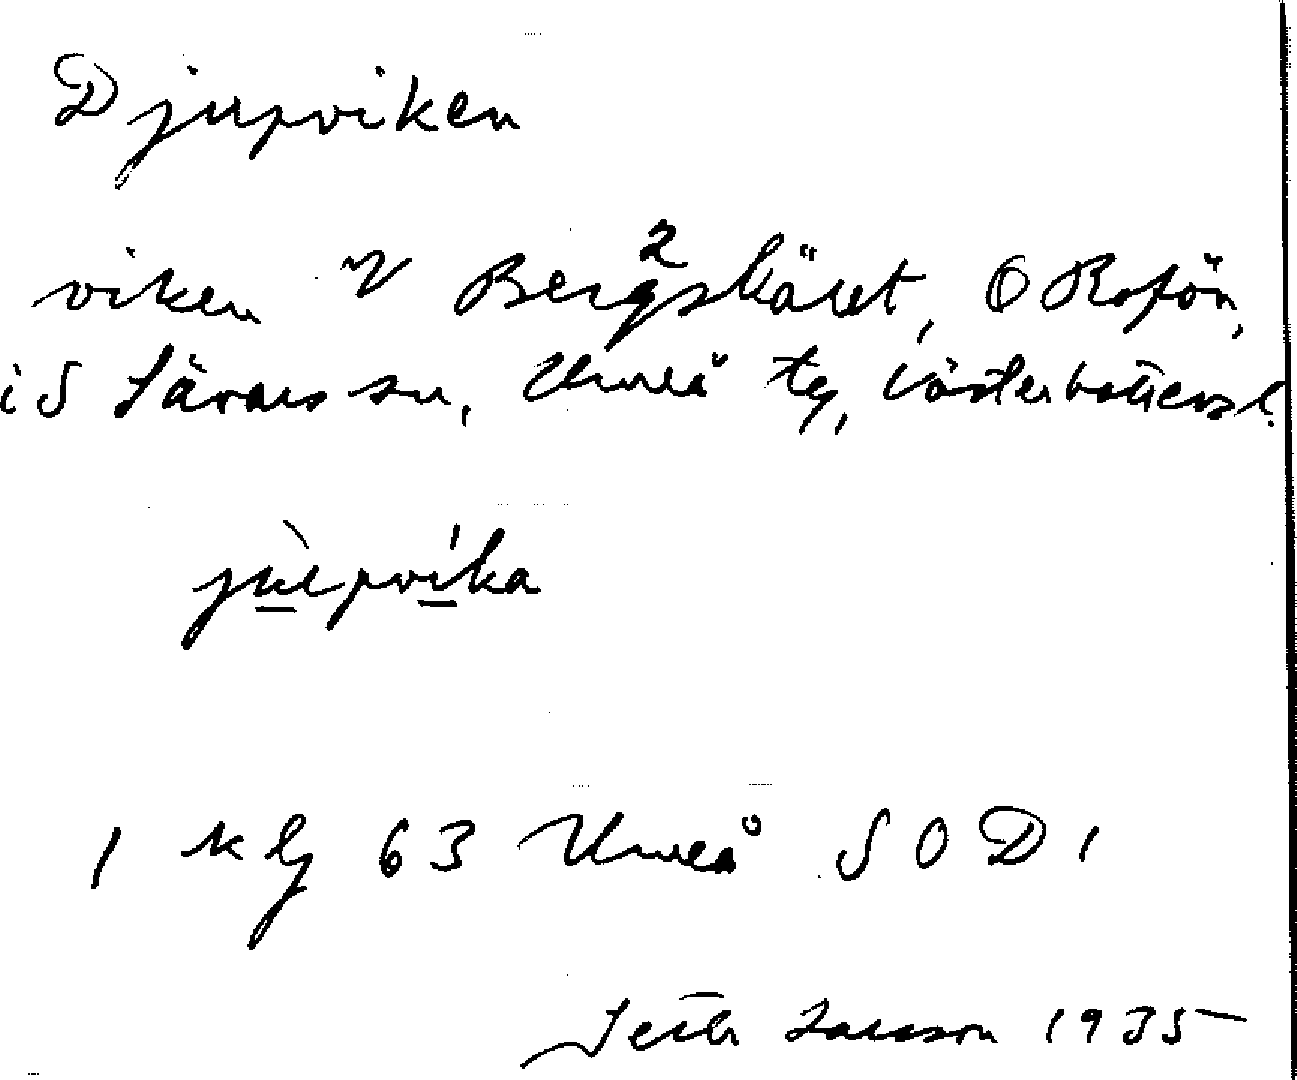 Djupviken
viken V Bergskäret, O Rofön,
i S Sävars sn, Umeå tg, Västerbottens l.
jùpvíka
1 kbl 63 Umeå S O D 1
Larsson 1935